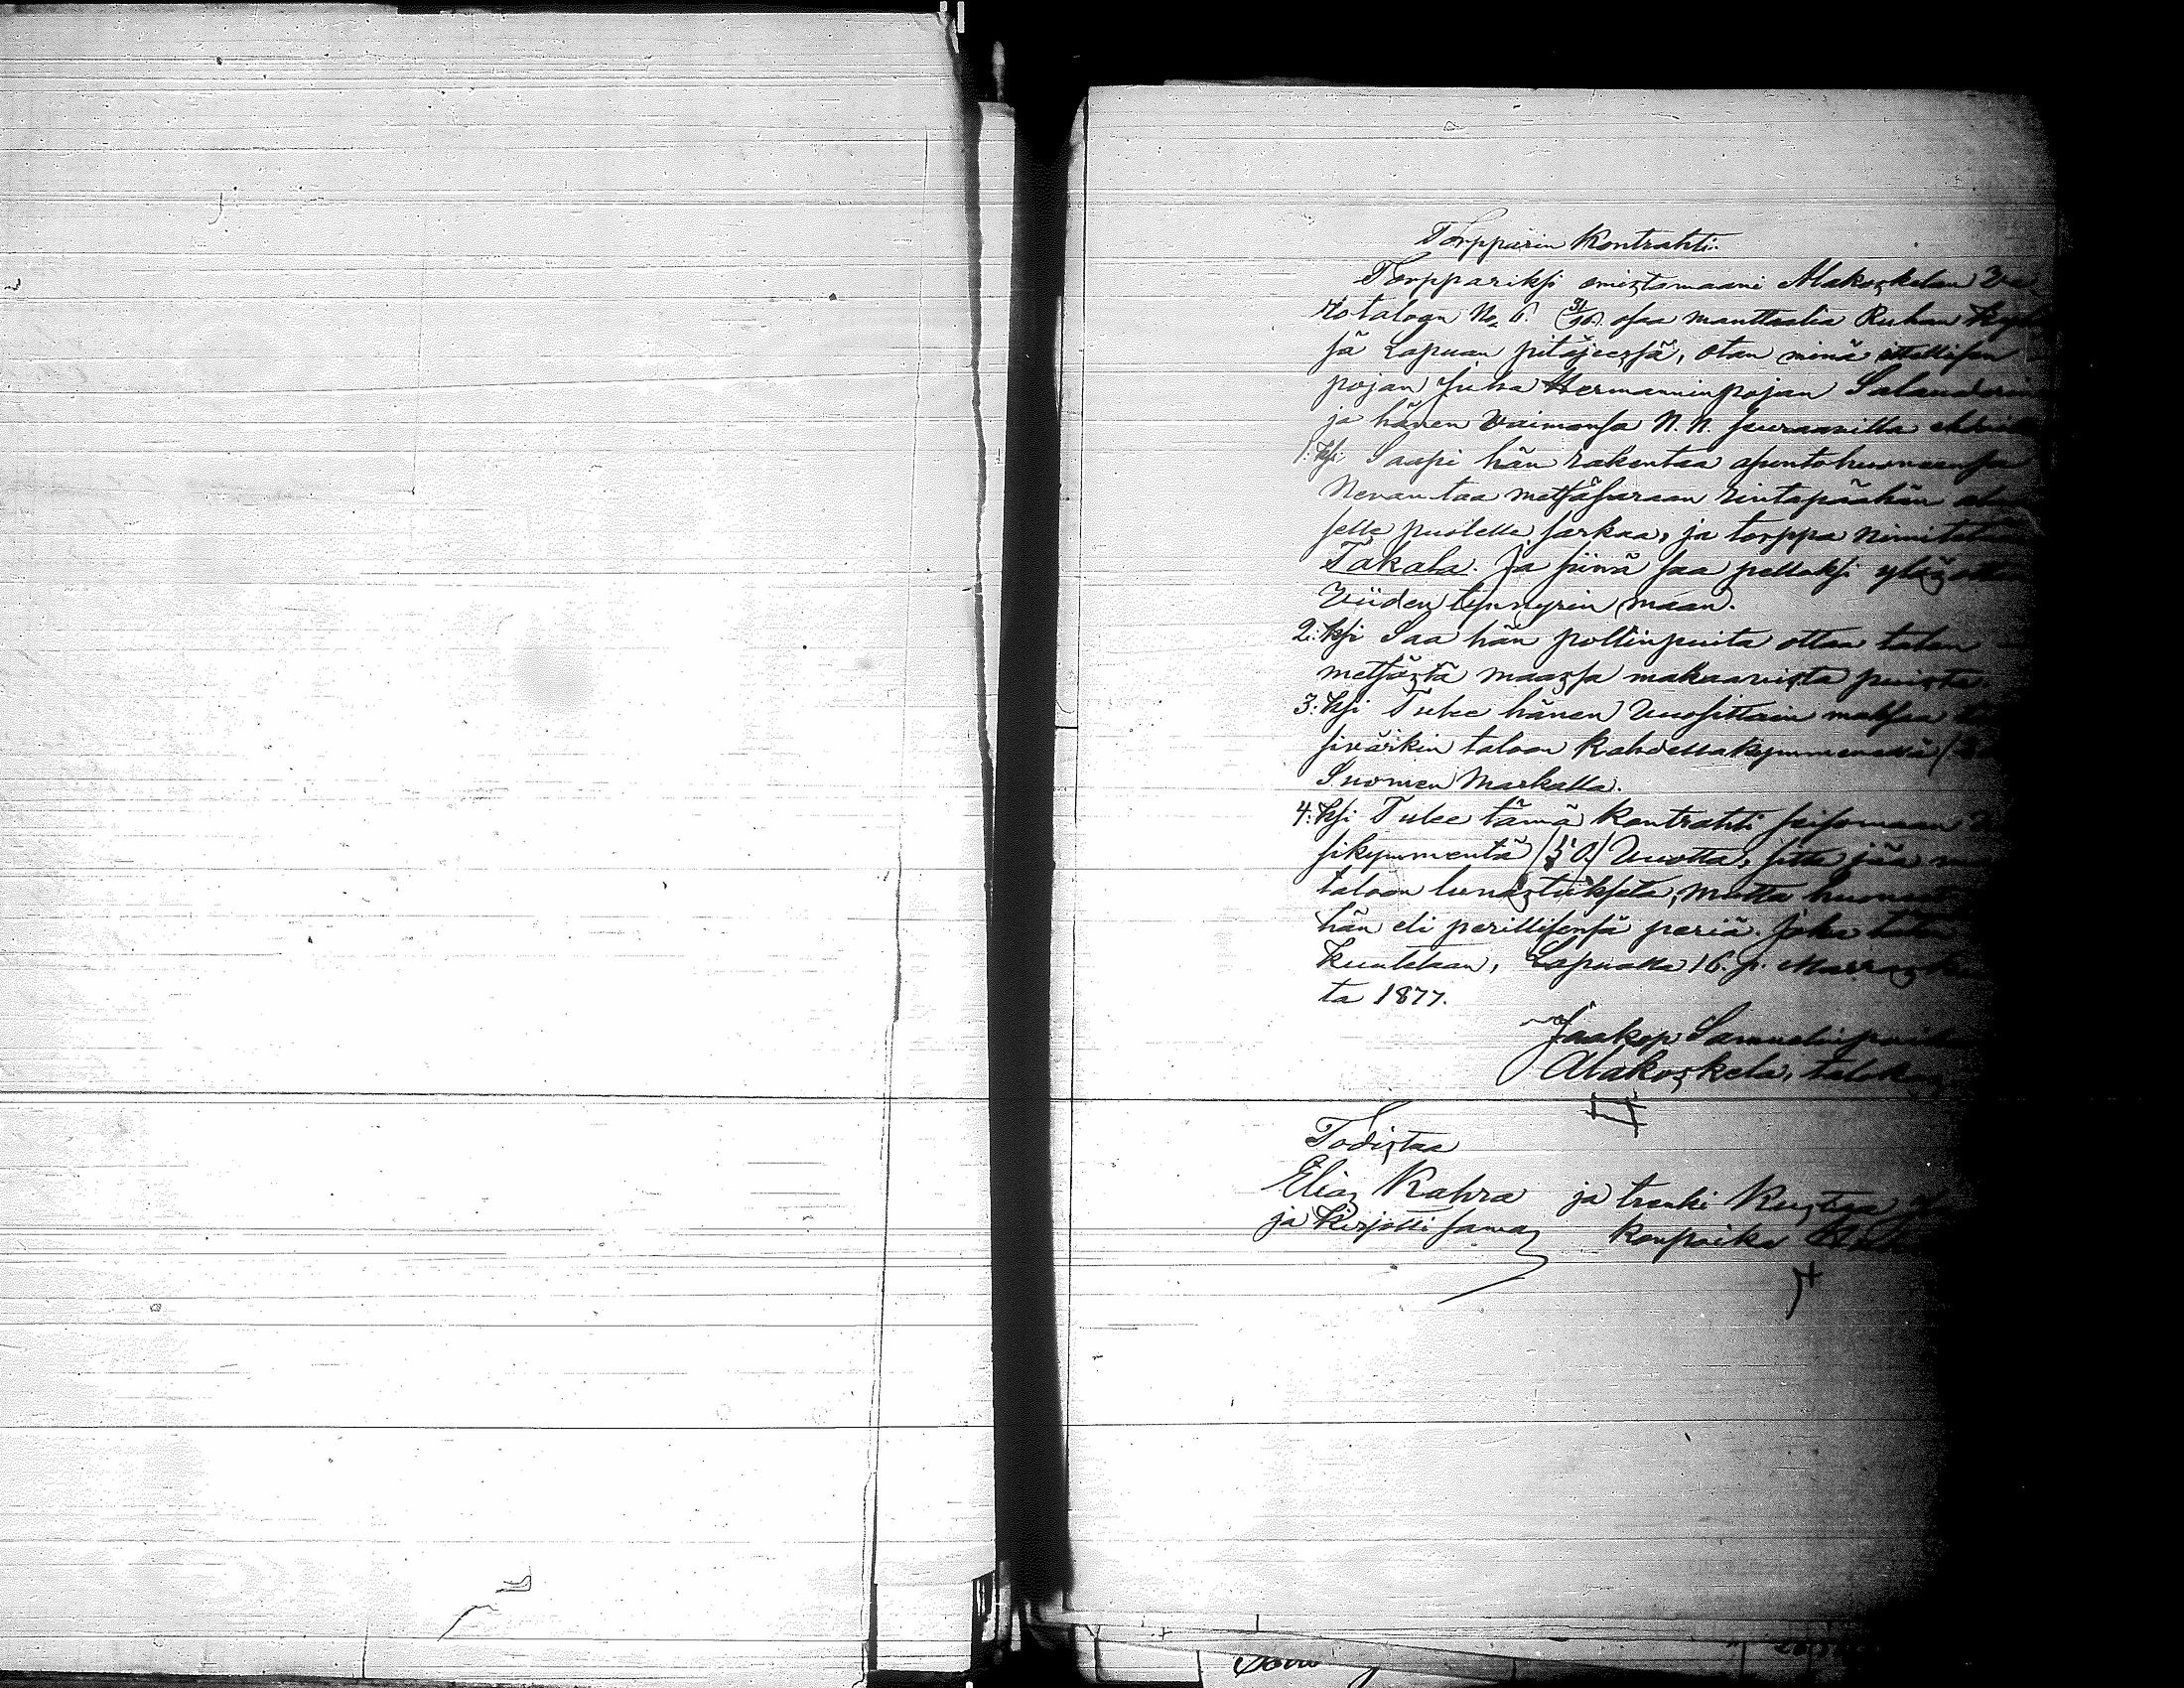 Torpparin Kontrahti.
Torppariksi omistamaani Alakoskelan Ve-
rotaloon No 6. (3/16) osaa manttaalia Ruhan Kylä
sä Lapuan pitäjeessä, otan minä ittellisen
pojan Juha Hermanninpojan Salanderin
ja hänen Vaimonsa N. N. seuraavilla
1:ksi Saapi hän rakentaa asuntohuoneensa
Nevan taa metsäsaraan rintapäähän
selle puolelle sarkaa, ja torppa nimitetään
Takala. Ja siinä saa pelloksi ylösottaa
Viiden tynnyrin maan.
2:ksi Saa hän polttinpuita ottaa talon
metsästä maassa makaavista puista.
3:ksi Tulee hänen Vuosittain maksaa
sivärkin taloon Kahdellakymmenellä
Suomen Markalla.
4:ksi Tulee tämä Kontrahti seisomaan
sikymmentä (50) Vuotta, sitte jää
taloon lunastukseta, mutta huoneet
hän eli perillisensä periä. Joka täten
Kuuletaan, Lapualla 16. p. Marrasku
ta 1877.
Jaakop Samuelinpoika
Alakoskela, talok
Todistaa
Elias Kahra ja trenki Kustaa
ja Kirjotti samas Konpoika